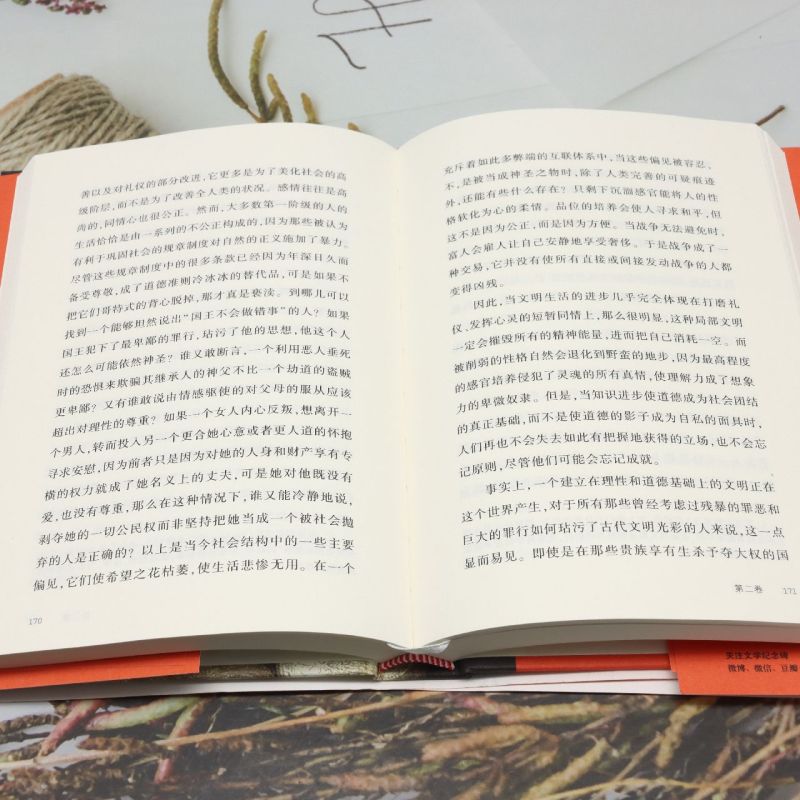 善以及对礼仪的部分改进，它更多是为了美化社会的高
级阶层，而不是为了改善全人类的状况。感情往往是高
尚的，同情心也很公正。然而，大多数第一阶级的人的
生活恰恰是由一系列的不公正构成的，因为那些被认为
有利于巩固社会的规章制度对自然的正义施加了暴力。
尽管这些规章制度中的很多条款已经因为年深日久而
备受尊敬，成了道德准则冷冰冰的替代品，可是如果不
把它们哥特式的背心脱掉，那才真是亵渎。到哪儿可以
找到一个能够坦然说出“国王不会做错事”的人？如果
国王犯下了最卑鄙的罪行，玷污了他的思想，他这个人
还怎么可能依然神圣？谁又敢断言，一个利用恶人垂死
时的恐惧来欺骗其继承人的神父不比一个劫道的盗贼
更卑鄙？又有谁敢说由情感驱使的对父母的服从应该
超出对理性的尊重？如果一个女人内心反叛，想离开一
个男人，转而投入另一个更合她心意或者更人道的怀抱
寻求安慰，因为前者只是因为对她的人身和财产享有专
横的权力就成了她名义上的丈夫，可是她对他既没有
爱，也没有尊重，那么在这种情况下，谁又能冷静地说，
剥夺她的一切公民权而非坚持把她当成一个被社会抛
弃的人是正确的？以上是当今社会结构中的一些主要
偏见，它们使希望之花枯萎，使生活悲惨无用。在一个
170
充斥着如此多弊端的互联体系中，当这些偏见被容忍，
不，是被当成神圣之物时，除了人类完善的可疑痕迹
外，还能有些什么存在？只剩下沉湎感官能将人的性
格软化为心的柔情。品位的培养会使人寻求和平，但
这不是因为公正，而是因为方便。当战争无法避免时，
富人会雇人让自己安静地享受奢侈。于是战争成了一
种交易，它并没有使所有直接或间接发动战争的人都
变得凶残。
因此，当文明生活的进步几乎完全体现在打磨礼
仪、发挥心灵的短暂同情上，那么很明显，这种局部文明
一定会摧毁所有的精神能量，进而把自己消耗一空。而
被削弱的性格自然会退化到野蛮的地步，因为最高程度
的感官培养侵犯了灵魂的所有真情，使理解力成了想象
力的卑微奴隶。但是，当知识进步使道德成为社会团结
的真正基础，而不是使道德的影子成为自私的面具时，
人们再也不会失去如此有把握地获得的立场，也不会忘
记原则，尽管他们可能会忘记成就。
事实上，一个建立在理性和道德基础上的文明正在
这个世界产生，对于所有那些曾经考虑过残暴的罪恶和
巨大的罪行如何玷污了古代文明光彩的人来说，这一点
显而易见。即使是在那些贵族享有生杀予夺大权的国
第二卷 171
关注文学纪念碑
微博、微信、豆瓣